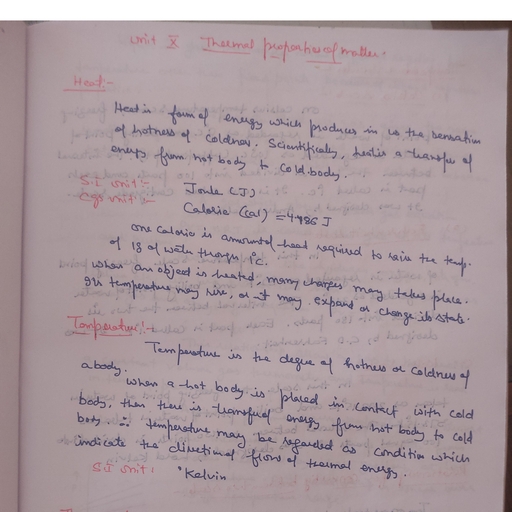 Unit X Thermal properties of matter.
Heat:-
Heat is form of energy which produces in us the sensation
of hotness of coldness. Scientifically, heat is a transfer of
energy from hot body to cold body.
S.I unit:- Joule (J)
Cgs unit:- Calorie (cal) = 4.186 J
One calorie is amount of head required to raise the temp.
of 1g of water through 1°C.
When an object is heated, many changes may takes place.
Its temperature may rise, or it may expand or change its state.
Temperature:-
Temperature is the degree of hotness or coldness of
a body.
When a hot body is placed in contact with cold
body, then there is transfer of energy from hot body to cold
body. ∴ temperature may be regarded as condition which
indicate the directional flow of thermal energy.
S.I unit: °Kelvin